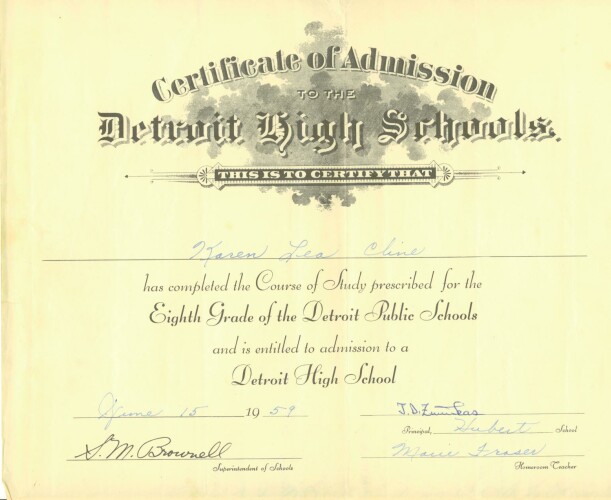 Certificate of Admission
TO THE
Detroit High Schools.
THIS IS TO CERTIFY THAT
Karen Lea Cline
has completed the Course of Study prescribed for the
Eighth Grade of the Detroit Public Schools
and is entitled to admission to a
Detroit High School
June 15 1959
J.D.
Principal, Hubert School
S. M. Brownell
Superintendent of Schools
Marie Fraser
Homeroom Teacher